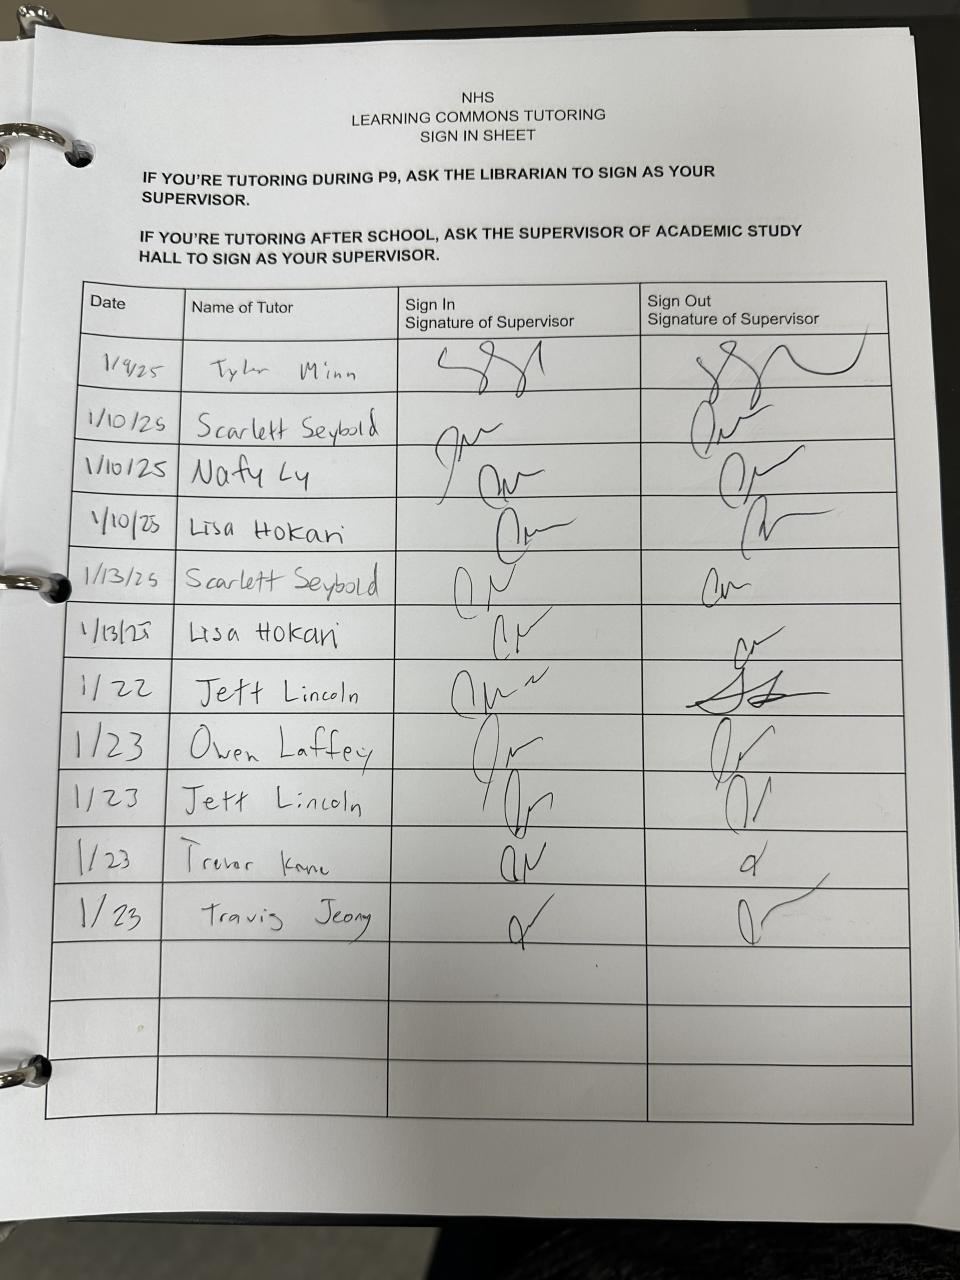 NHS
LEARNING COMMONS TUTORING
SIGN IN SHEET
IF YOU'RE TUTORING DURING P9, ASK THE LIBRARIAN TO SIGN AS YOUR
SUPERVISOR.
IF YOU'RE TUTORING AFTER SCHOOL, ASK THE SUPERVISOR OF ACADEMIC STUDY
HALL TO SIGN AS YOUR SUPERVISOR.
Date Name of Tutor Sign In Sign Out
Signature of Supervisor Signature of Supervisor
1/9/25 Tyler Minn
1/10/25 Scarlett Seybold
1/10/25 Nafy Ly
1/10/25 Lisa Hokari
1/13/25 Scarlett Seybold
1/13/25 Lisa Hokari
1/22 Jett Lincoln
1/23 Owen Laffey
1/23 Jett Lincoln
1/23 Trevor Kane
1/23 Travis Jeong